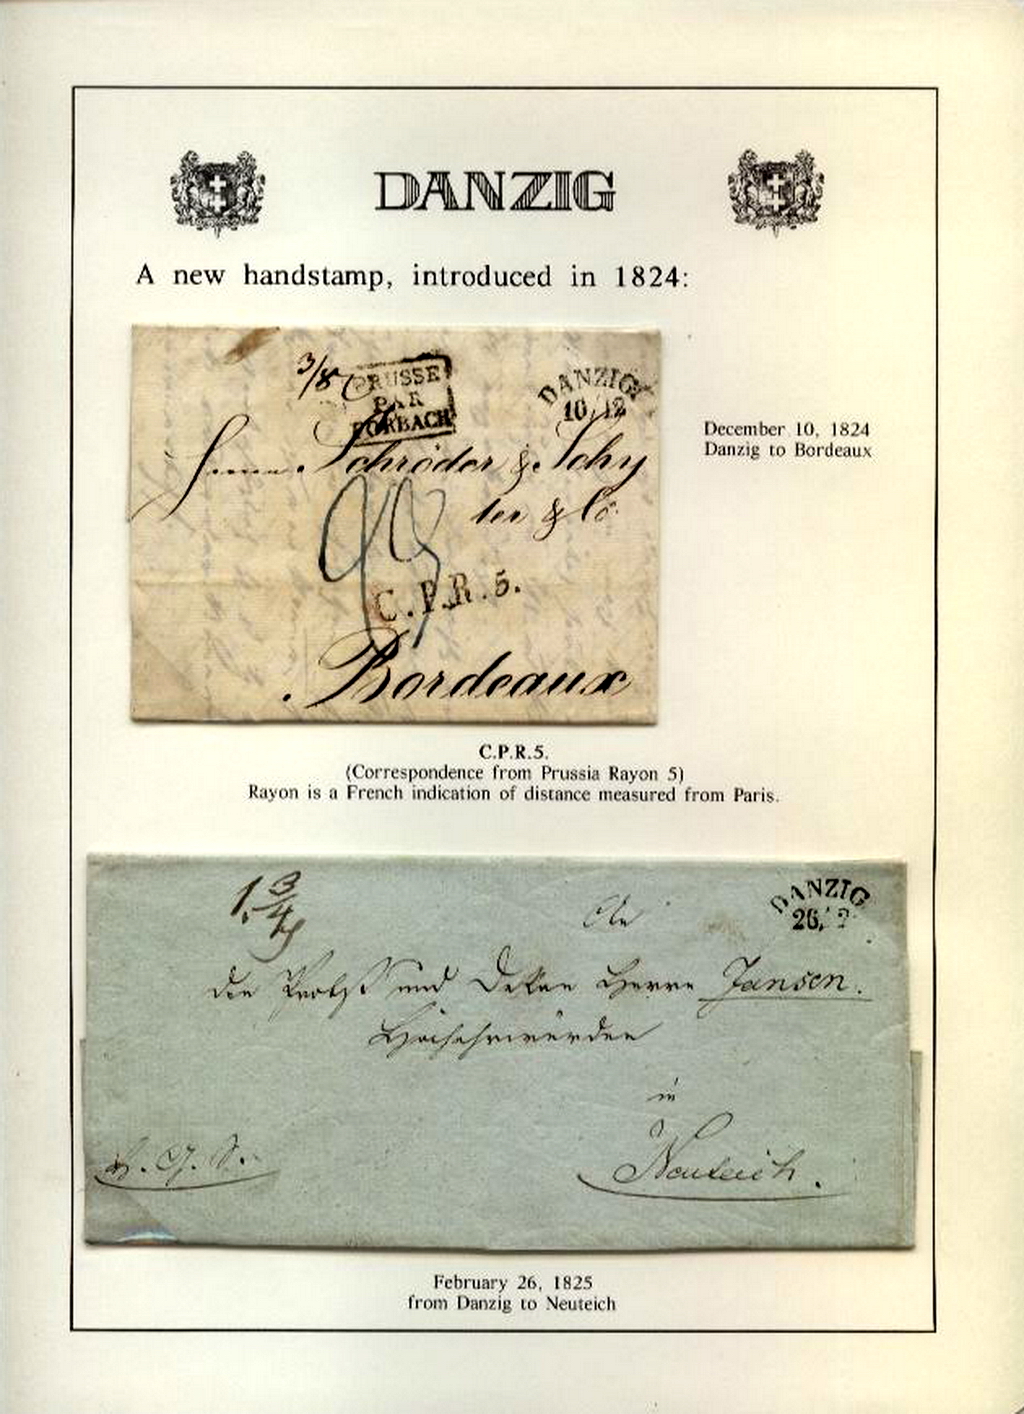 DANZIG
A new handstamp, introduced in 1824:
3/8
PRUSSE
PAR
FORBACH
DANZIG
10/12
Herren Schröder & Schy
ler & Co.
C.P.R.5.
Bordeaux
December 10, 1824
Danzig to Bordeaux
C.P.R.5.
(Correspondence from Prussia Rayon 5)
Rayon is a French indication of distance measured from Paris.
1 3/4
DANZIG
26/2
An
den Probst und Dekan Herrn Jansen.
Hochehrwürden
in
Neuteich.
February 26, 1825
from Danzig to Neuteich